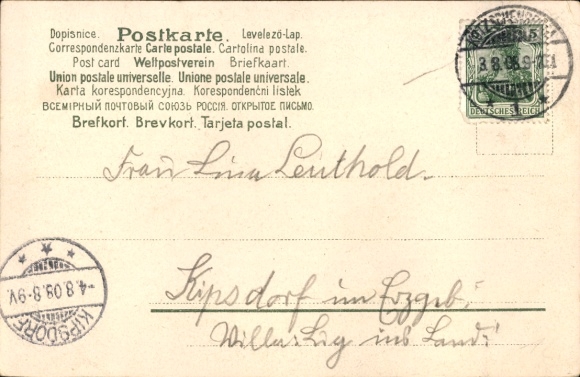 Dopisnice. Postkarte. Levelező-Lap.
Correspondenzkarte Carte postale. Cartolina postale.
Post card Weltpostverein Briefkaart.
Union postale universelle. Unione postale universale.
Karta korespondencyjna. Korespondenčni listek
ВСЕМІРНЫЙ ПОЧТОВЫЙ СОЮЗЪ РОССІЯ. ОТКРЫТОЕ ПИСЬМО.
Brefkort. Brevkort. Tarjeta postal.
DEUTSCHES REICH
Frau Lina Leuthold.
Kipsdorf im Erzgeb.
Villa: Lug ins Land!
-4.8.08.8-9V.
KIPSDORF